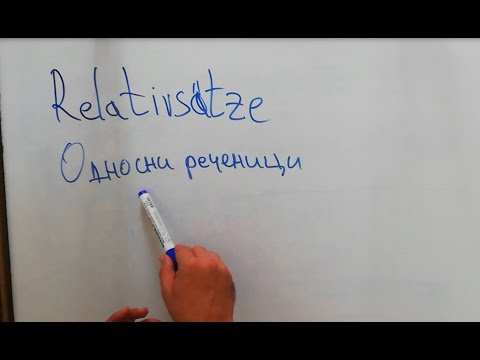 Relativsätze
Односни реченици